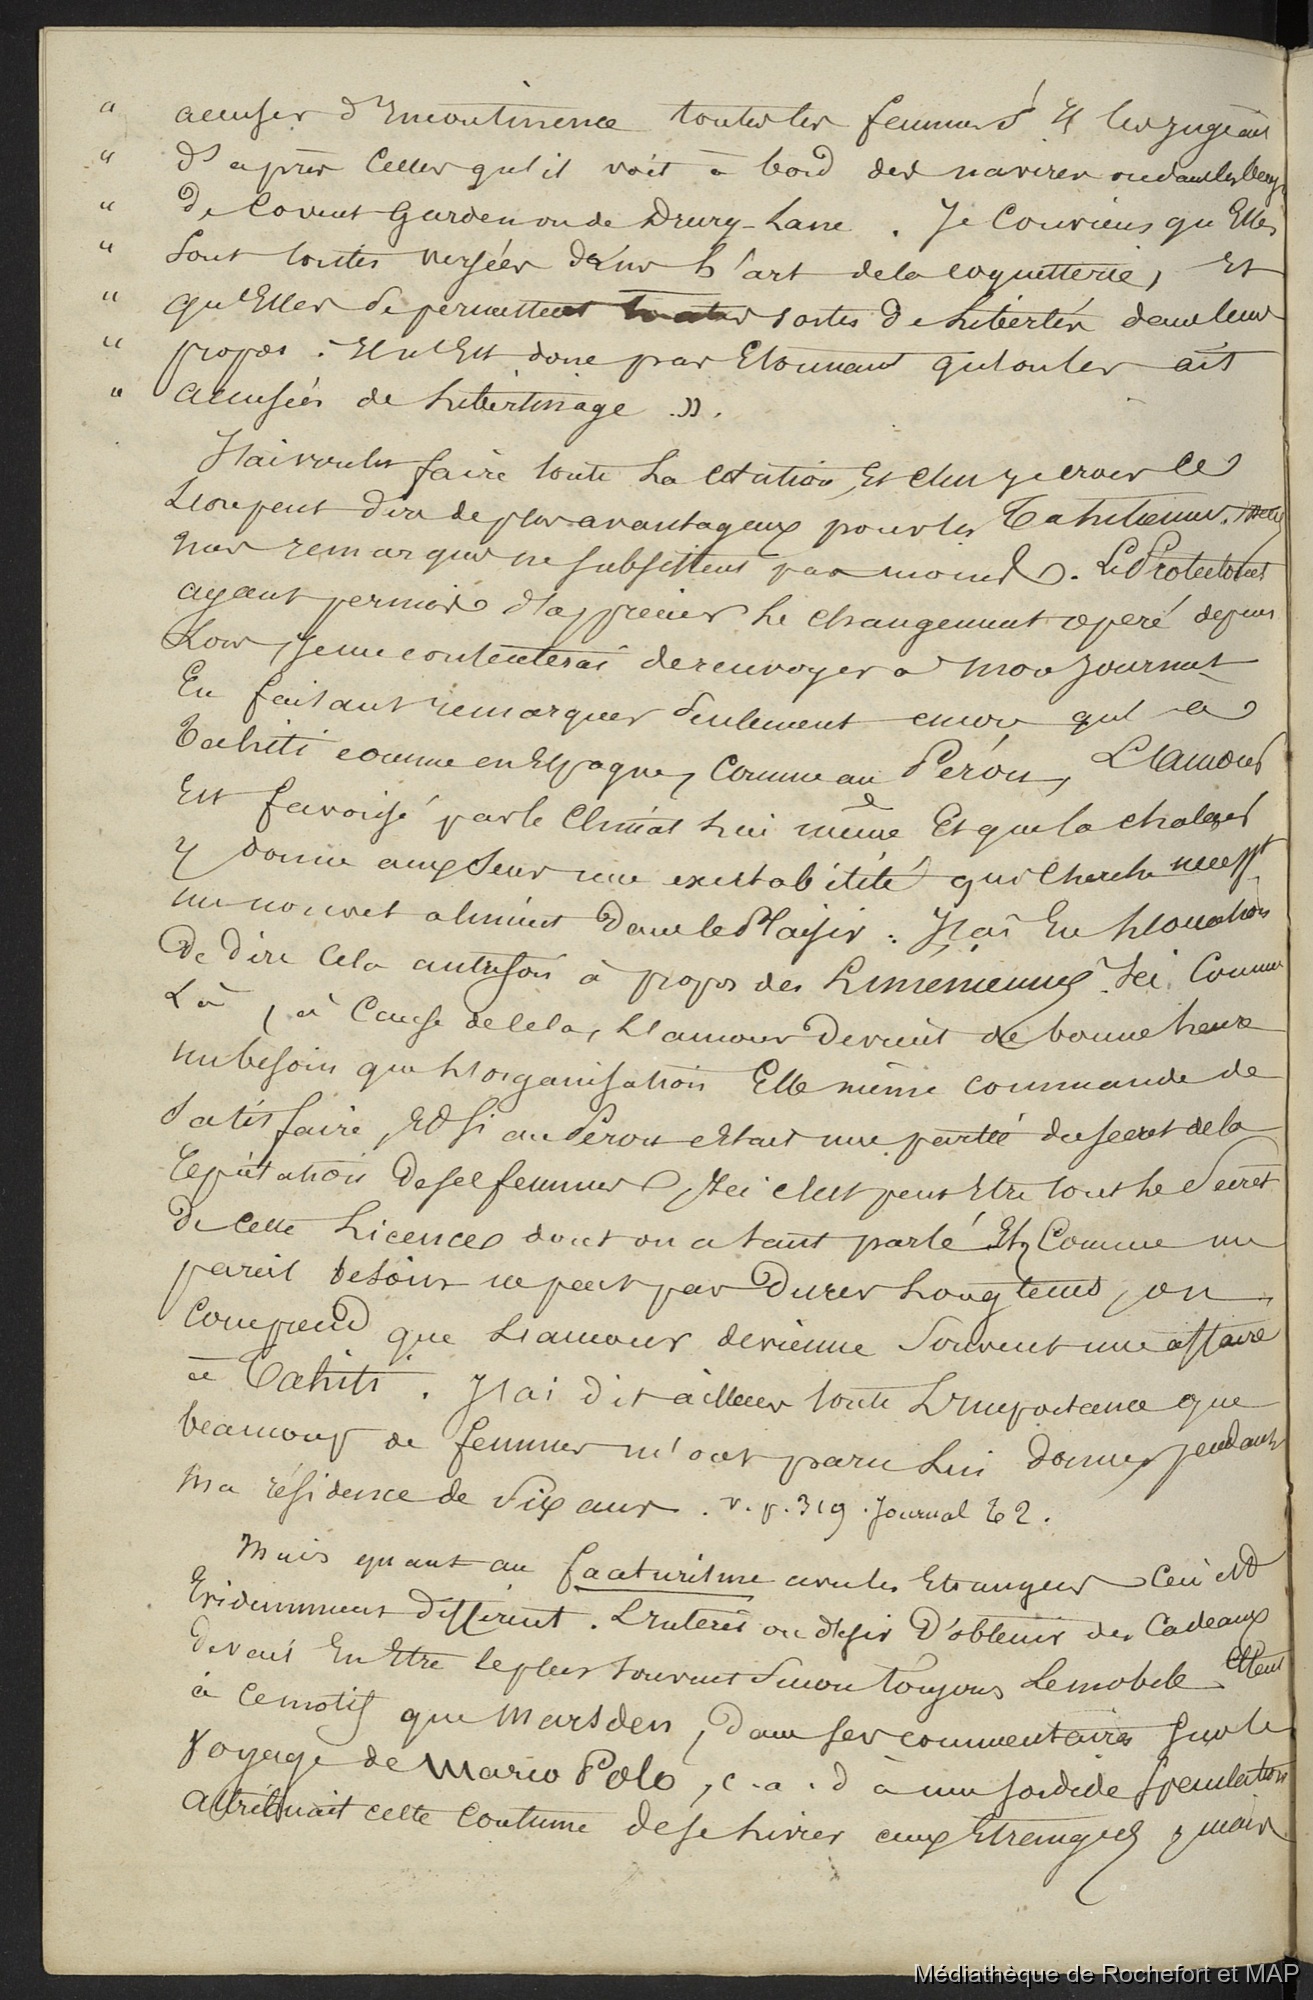 " accuser d'Incontinence toutes les femmes Et les jugeant
" d'après Celles qu'il voit à bord des navires ou dans les
" De Covent Garden ou de Drury-Lane. Je Conviens qu'Elles
" Sont toutes versées dans l'art de la coquetterie, Et
" qu'Elles se permettent toutes sortes De Libertés dans leurs
" propos. Il n'Est donc pas Etonnant qu'on les ait
" accusées de Libertinage ».
J'ai voulu faire toute La citation, Et c'est je crois ce
L'on peut dire de plus avantageux pour les Tahitiennes. Mais
mes remarques ne subsistent pas moins. Le Protectorat
ayant permis d'apprécier Le changement opéré depuis
Lors, je me contenterai de renvoyer à mon journal
En faisant remarquer seulement encore qu'à
Tahiti comme en Espagne, Comme au Pérou, L'amour
Est favorisé par le Climat Lui même Et que la chaleur
y donne aux sens une excitabilité qui cherche
un nouvel aliment Dans le Plaisir. J'ai Eu L'occasion
De dire Cela autrefois à propos des Liméniennes. Ici Comme
Là, à Cause de cela, L'amour Devient de bonne heure
un besoin que L'organisation Elle même commande de
Satisfaire, Et si au Pérou c'était une partie du secret de la
réputation De ses femmes, Ici c'est peut Etre tout Le Secret
De Cette Licence dont on a tant parlé Et Comme un
pareil besoin ne peut pas Durer Longtems, on
Comprend que L'amour devienne Souvent une affaire
à Tahiti. J'ai dit ailleurs toute L'Importance que
beaucoup de femmes m'ont paru Lui donner pendant
Ma résidence de Six ans. v. p. 319. Journal T 2.
Mais quant au faaturisme avec les Etrangers Ceci Est
Evidemment différent. L'Intérêt ou désir D'obtenir des Cadeaux
Devait En Etre le plus souvent Sinon toujours Le mobile.
à ce motif que Marsden, Dans ses commentaires sur le
Voyage de Marco Polo, c. a. d à une sordide spéculation
attribuait cette Coutume de se Livrer aux Etrangers, mais
Médiathèque de Rochefort et MAP